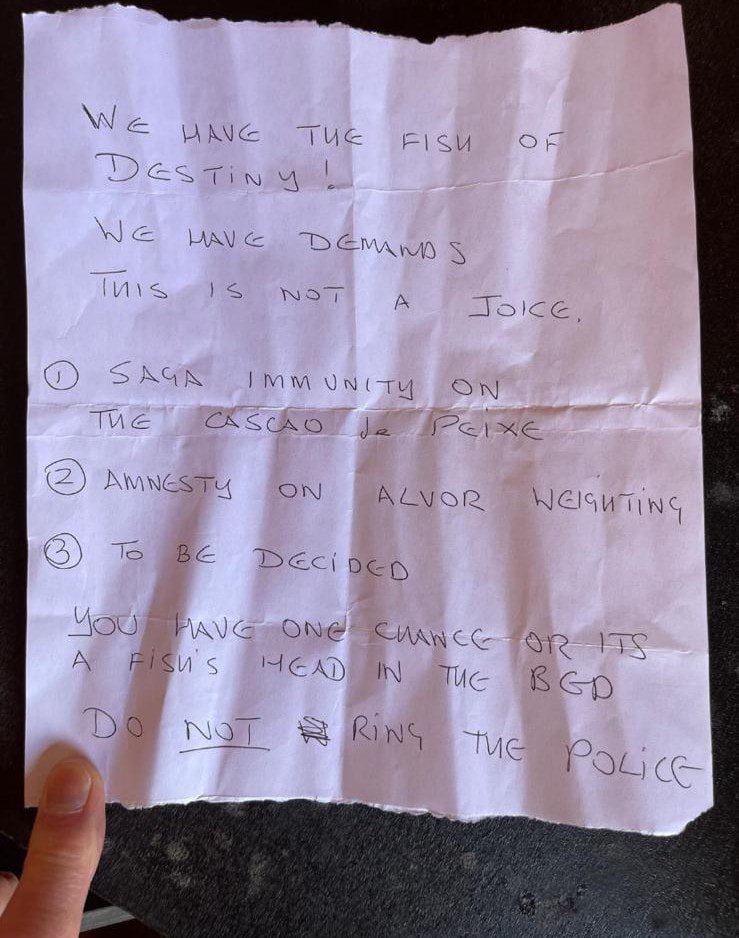 WE HAVE THE FISH OF
DESTINY!
WE HAVE DEMANDS
THIS IS NOT A JOKE.
① SAGA IMMUNITY ON
THE CASCAO de PEIXE
② AMNESTY ON ALVOR WEIGHTING
③ TO BE DECIDED
YOU HAVE ONE CHANCE OR ITS
A FISH'S HEAD IN THE BED
DO NOT RING THE POLICE